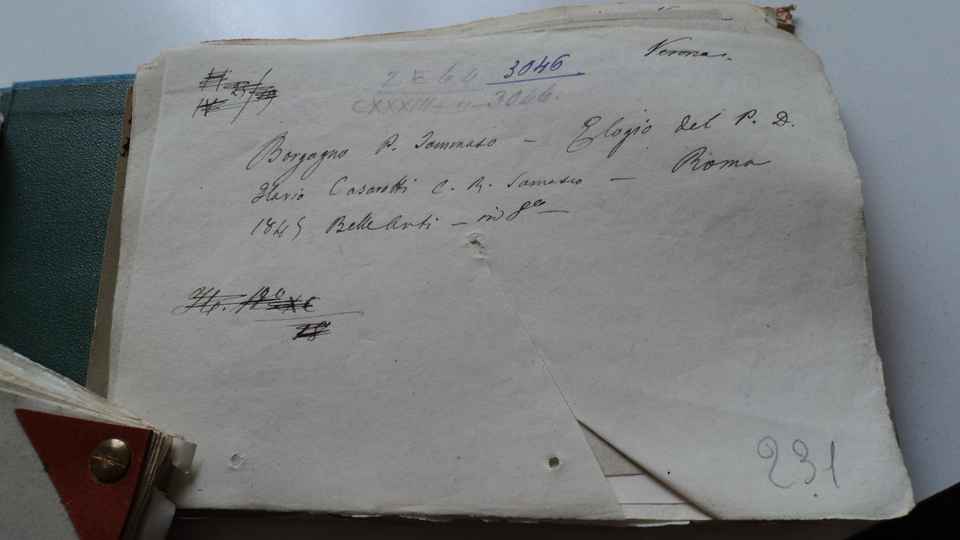 Verona.
2 E 64 3046
CXXXIII - 4 - 3046.
Borgogno P. Tommaso — Elogio del P. D.
Ilario Casarotti C. R. Somasco — Roma
1845 Belle Arti — in 8°—
231